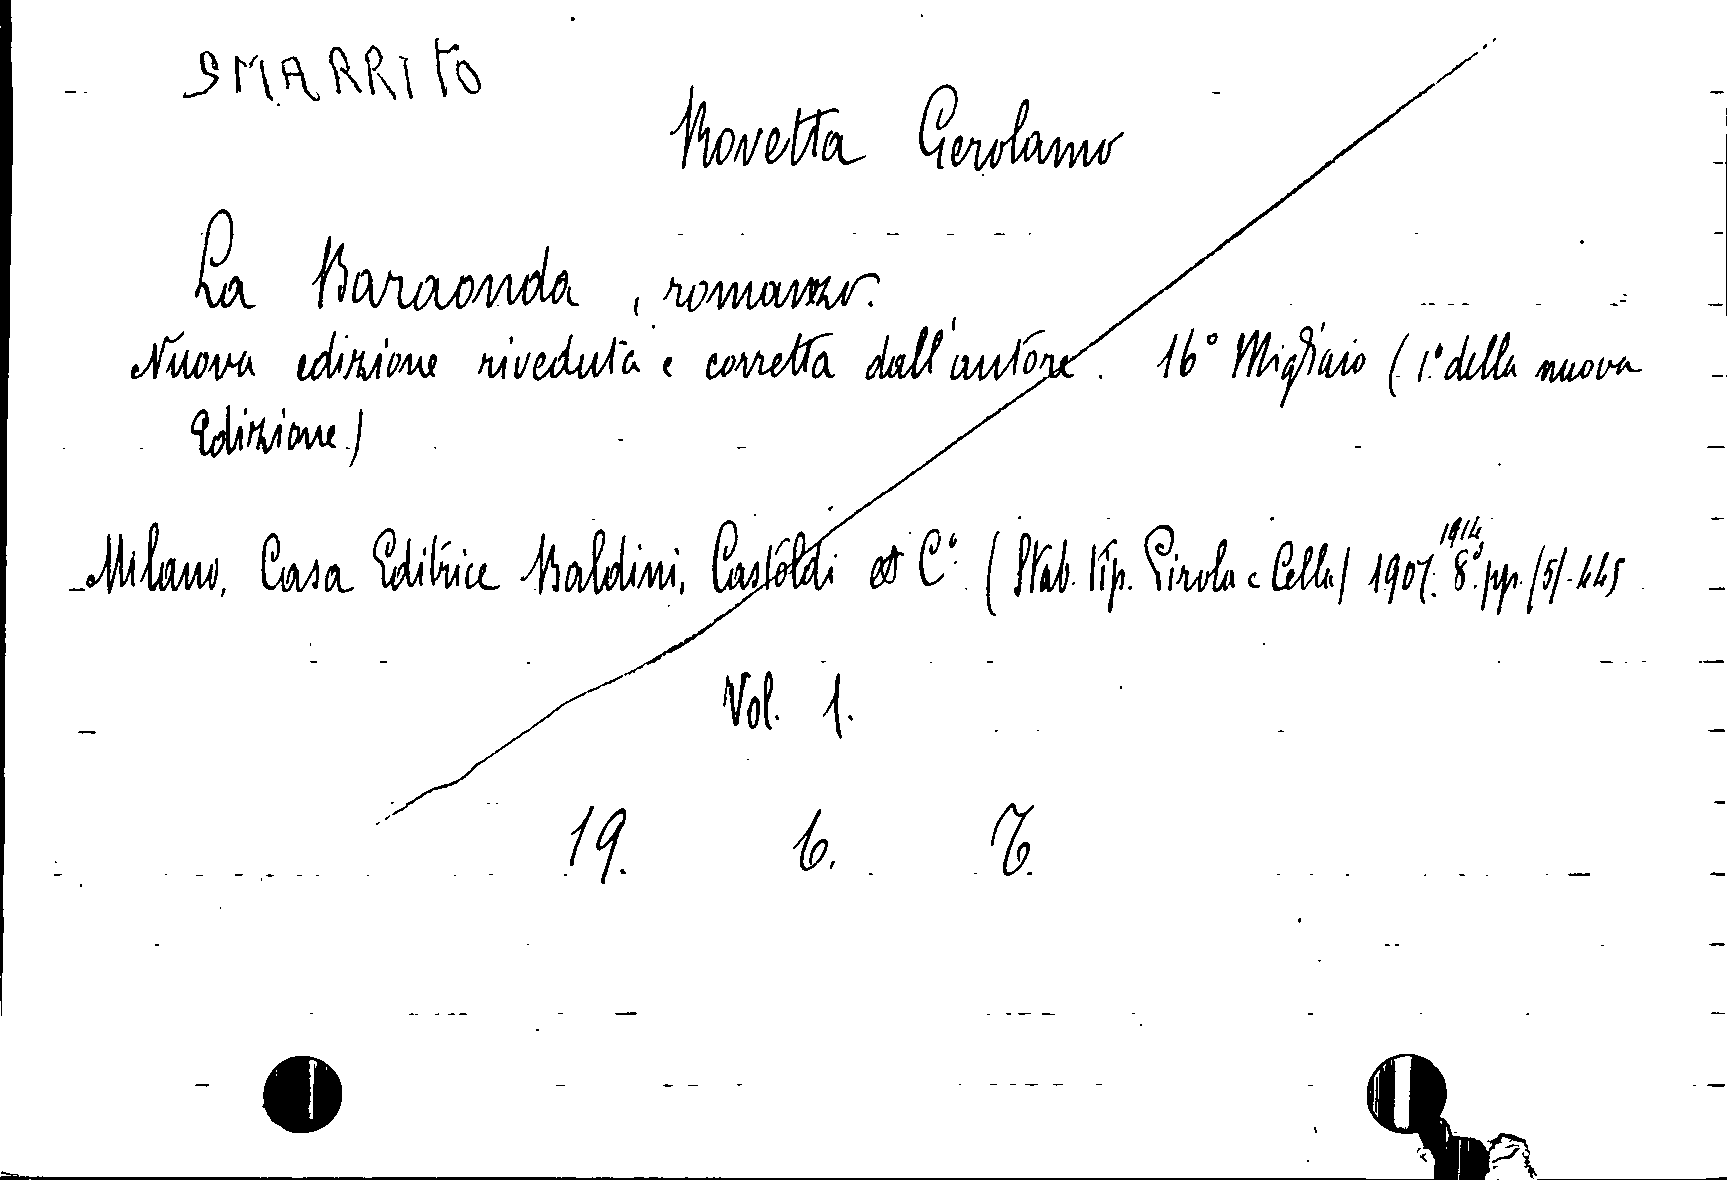 SMARRITO
Rovetta Gerolamo
La Baraonda, romanzo.
Nuova edizione riveduta e corretta dall'autore. 16° Migliaio (1.° della nuova
Edizione)
Milano, Casa Editrice Baldini, Castoldi et C.° (Stab. Tip. Pirola e Cella) 1907. 8.° pp. (5)-445
1914
Vol. 1.
19. 6. 7.